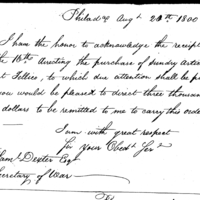 Philad.a Aug.t 20th 1800
I have the honor to acknowledge the receipt
the 16th directing the purchase of sundry artic
at Tellico, to which due attention shall be p
you would be pleased to direct three thousan
dollars to be remitted to me to carry this orde
I am with great respect
Sir your Obed.t Ser
Sam.l Dexter Esq.r
Secretary of War